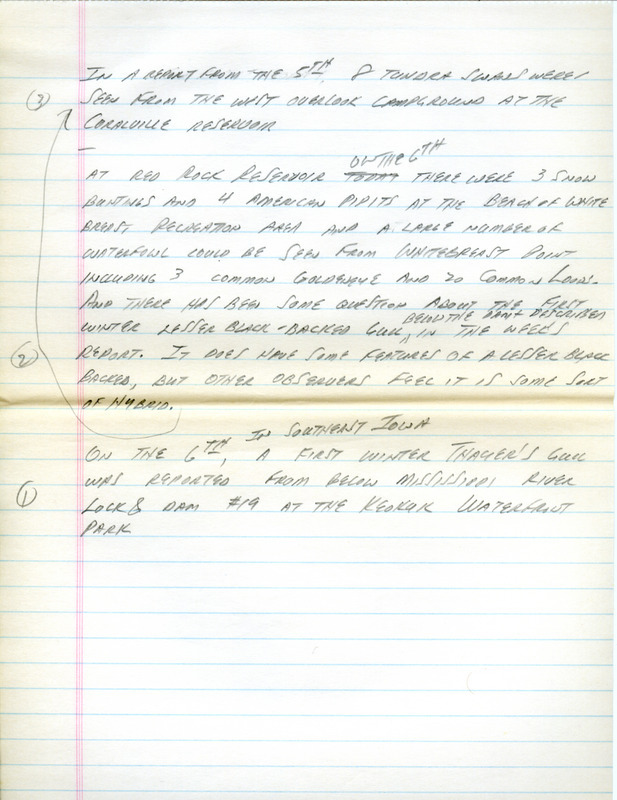 IN A REPORT FROM THE 5TH, 8 TUNDRA SWANS WERE
③ SEEN FROM THE WEST OVERLOOK CAMPGROUND AT THE
CORALVILLE RESERVOIR
—
ON THE 6TH
AT RED ROCK RESERVOIR TODAY THERE WERE 3 SNOW
BUNTINGS AND 4 AMERICAN PIPITS AT THE BEACH OF WHITE
BREAST RECREATION AREA AND A LARGE NUMBER OF
WATERFOWL COULD BE SEEN FROM WHITEBREAST POINT
INCLUDING 3 COMMON GOLDENEYE AND 20 COMMON LOONS.
AND THERE HAS BEEN SOME QUESTION ABOUT THE FIRST
BELOW THE DAM DESCRIBED
WINTER LESSER BLACK-BACKED GULL, IN THE WEEK'S
② REPORT. IT DOES HAVE SOME FEATURES OF A LESSER BLACK
BACKED, BUT OTHER OBSERVERS FEEL IT IS SOME SORT
OF HYBRID.
IN SOUTHEAST IOWA
ON THE 6TH, A FIRST WINTER THAYER'S GULL
① WAS REPORTED FROM BELOW MISSISSIPPI RIVER
LOCK & DAM #19 AT THE KEOKUK WATERFRONT
PARK